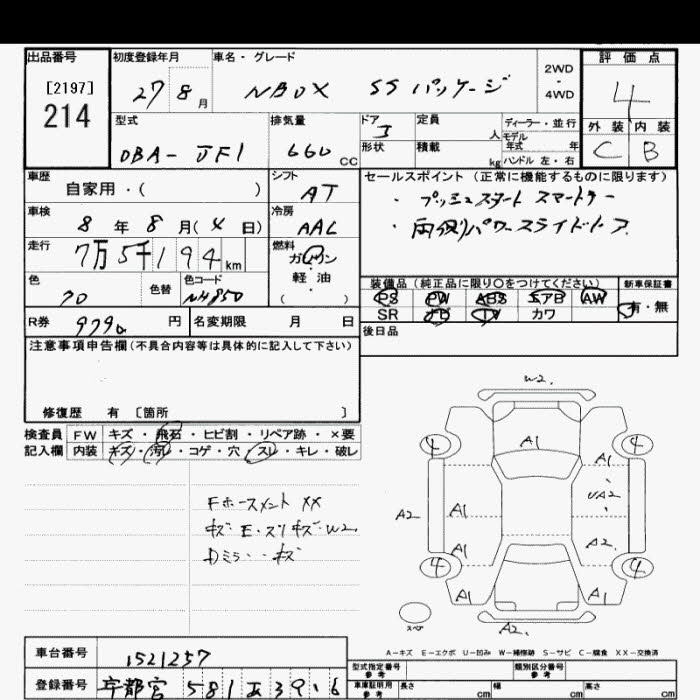 出品番号
[2197]
214
初度登録年月
27 8 月
車名・グレード
NBOX SSパッケージ
2WD
・
4WD
評価点
4
外装 内装
C B
型式
DBA-JF1
排気量
660 CC
ドア
形状
定員 人
積載 kg
ディーラー・並行
モデル
年式 年
ハンドル 左・右
車歴
自家用・( )
シフト
AT
車検
8 年 8 月 ( 4 日)
冷房
AAC
走行
7万5千194 km
燃料
ガソリン
軽・油
( )
色
色替
色コード
NH850
R券 円
名変期限 月 日
セールスポイント (正常に機能するものに限ります)
・プッシュスタート スマートキー
・両側パワースライドドア
装備品(純正品に限り〇をつけてください)
PS PW ABS エアB AW
SR ナビ TV カワ
新車保証書
有・無
後日品
注意事項申告欄(不具合内容等は具体的に記入して下さい)
修復歴 有 〔箇所 〕
検査員
記入欄
FW キズ・飛石・ヒビ割・リペア跡・×要
内装 キズ・汚レ・コゲ・穴・スリ・キレ・破レ
Fホースメント XX
キズ・E・スリキズ・W2
Dミラー・キズ
W2.
4 A1 4
A1
A2 A1 UA2
A1 A2.
4 4
A1 A1
スペア
A2.
A-キズ E-エクボ U-凹み W-補修跡 S-サビ C-腐食 XX-交換済
車台番号
1521257
登録番号
宇都宮 581 39・6
型式指定番号
参考
類別区分番号
参考
車庫証明用
参考
長さ cm
幅 cm
高さ cm